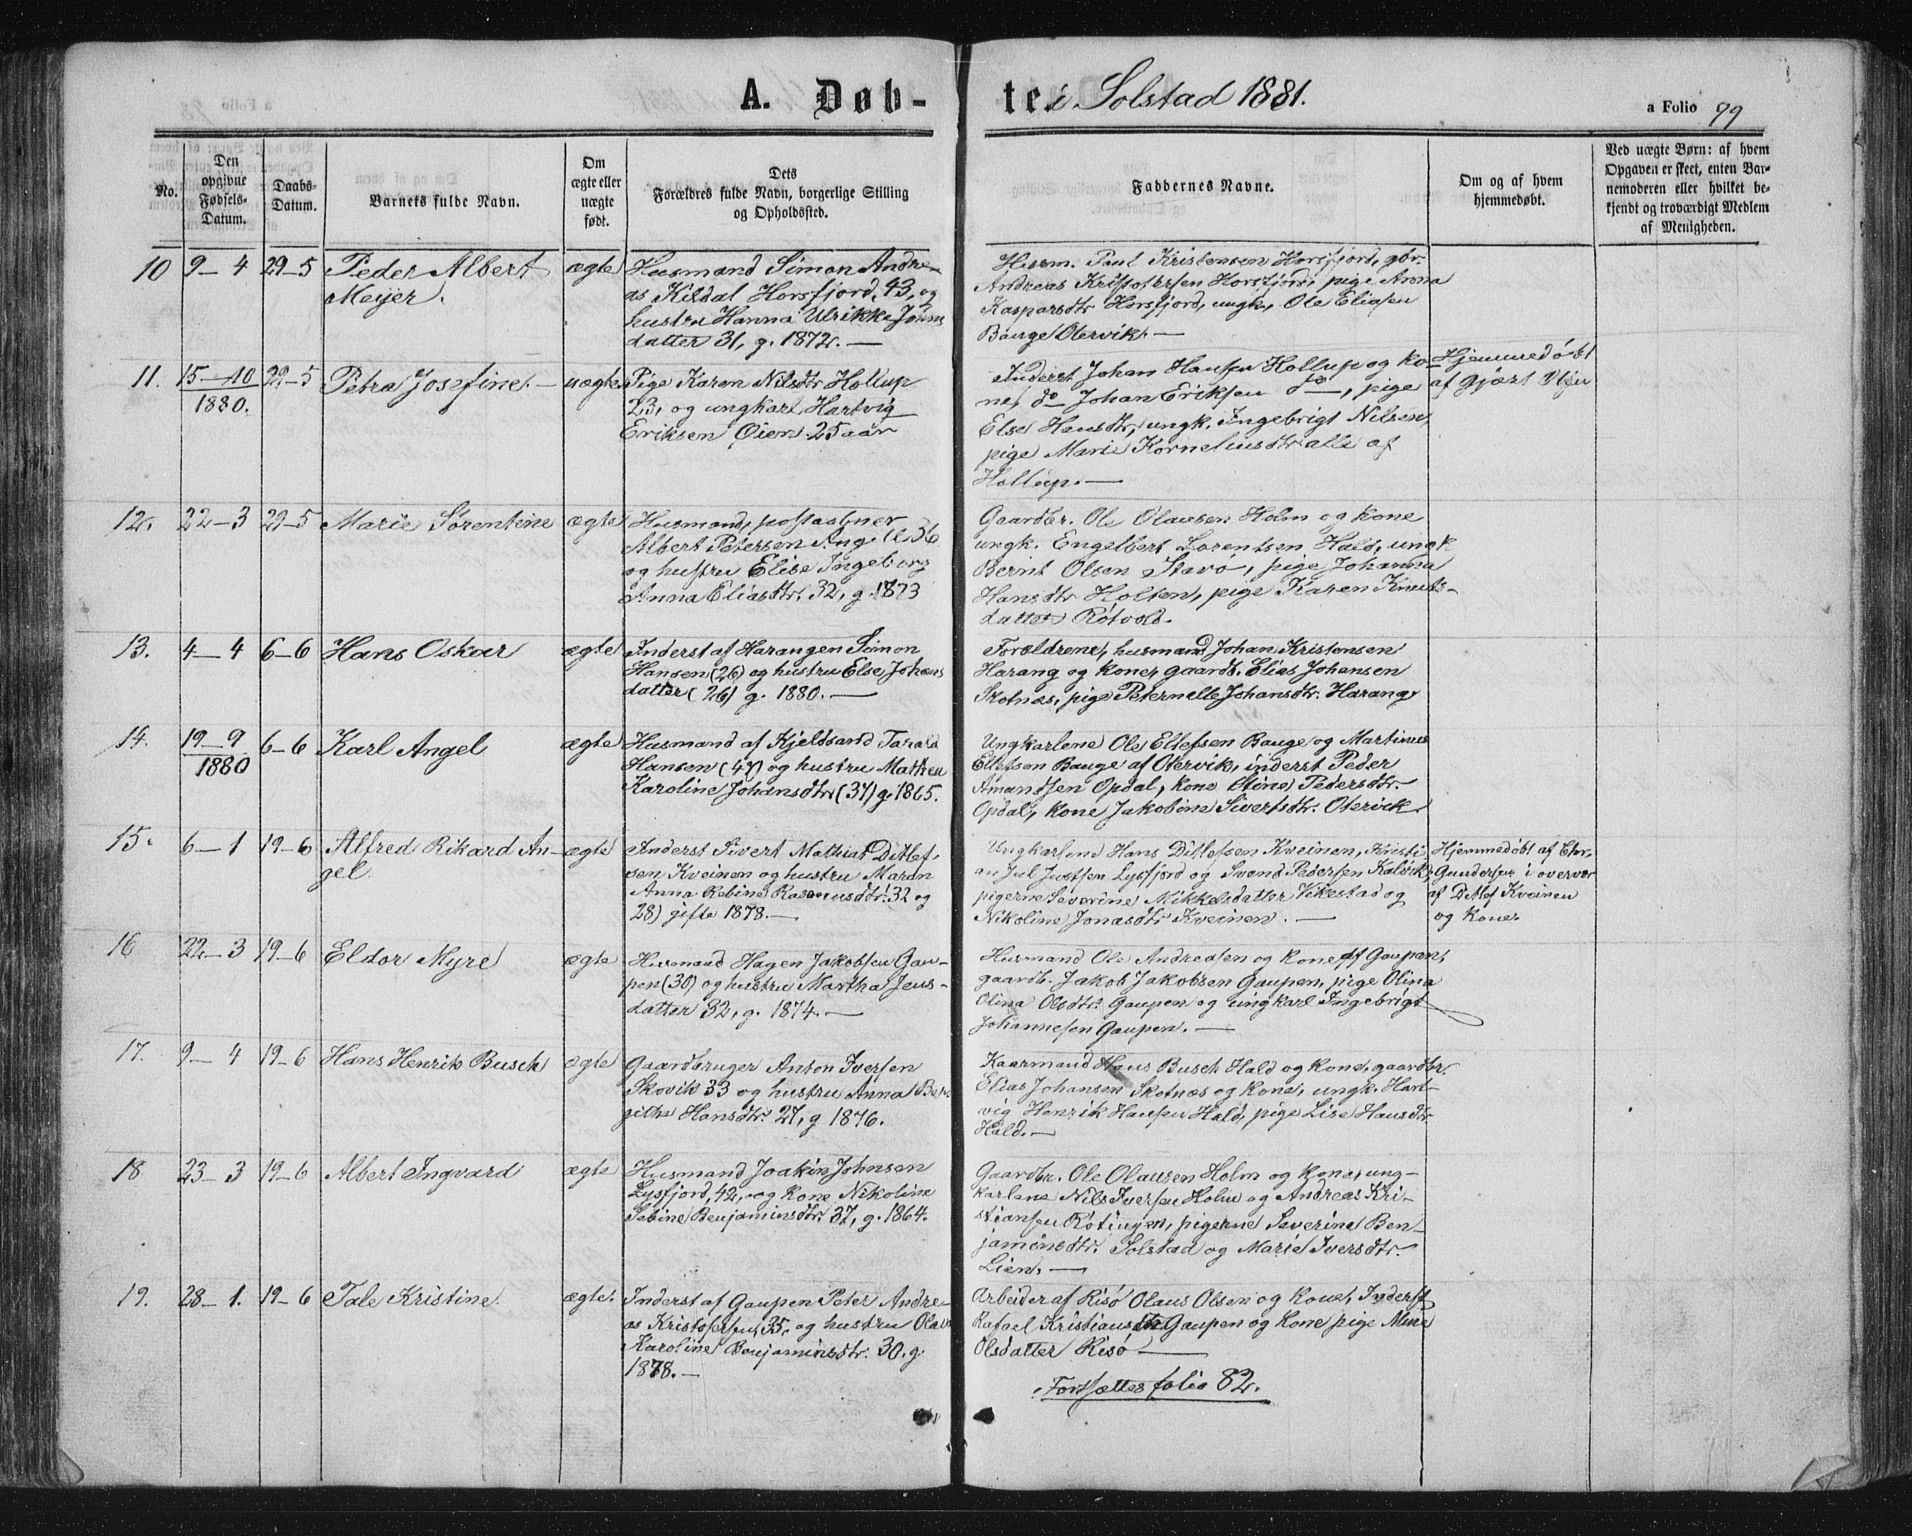 A. Døb-
te i Solstad 1881.
a Folio 79
No.
Den opgivne Fødsels-Datum.
Daabs-Datum.
Barnets fulde Navn.
Om ægte eller uægte født.
Dets Forældres fulde Navn, borgerlige Stilling og Opholdssted.
Faddernes Navne.
Om og af hvem hjemmedøbt.
Ved uægte Børn: af hvem Opgaven er skeet, enten Barnemoderen eller hvilket bekjendt og troværdigt Medlem af Menigheden.
10 9-4 29-5 Peder Albert ægte
Meijer.
Husmand Simon Andre-
as Kildal Horsfjord, 43, og
hustru Hanna Ulrikke Jons
datter 31, g. 1872. —
Husm. Paul Kristensen Horsfjord, gbr.
Andreas Kristofersen Horsfjord, pige Anna
Kaspersdtr Horsfjord, ungk. Ole Eliasen
Bauge Otervik. —
11. 15-10 29-5 Petra Josefine. — uægte.
1880.
Pige Karen Nilsdtr Hollup
23, og ungkarl Hartvig
Eriksen Øien 25 aar
Inderst Johan Hansen Hollup og ko-
ne, do Johan Eriksen do —, pige
Else Hansdtr, ungk. Ingebrigt Nilsen,
pige Marie Korneliusdtr alle af
Hollup. —
Hjemmedøbt
af Gjært
12. 22-3 29-5 Marie Sørentine ægte
Husmand, postaabner
Albert Petersen Angel, 36
og hustru Elise Ingeborg
Anna Eliasdtr. 32, g. 1873
Gaardbr. Ole Olausen Holm og kone
ungk. Engelbert Lorentsen Hald, ungk
Bernt Olsen Stavø, pige Johanna
Hansdtr Holten, pige Karen Knuts-
datter Røtvold.
13. 4-4 6-6 Hans Oskar ægte
Inderst af Harangen Simon
Hansen (26) og hustru Else Johans
datter (26) g. 1880. —
Forældrene, husmand Johan Kristensen
Harang og kone, gaardb. Elias Johansen
Skotnæs, pige Peternelle Johansdtr. Harang,
14. 19-9 6-6 Karl Angel ægte
1880
Husmand af Kjeldsand Tarald
Hansen (47) og hustru Mathea
Karoline Johansdtr (37) g. 1865.
Ungkarlene Ole Ellefsen Bauge og Martinus
Ellefsen Bauge af Otervik, inderst Peder
Amandsen Opdal, kone Stine Pedersdtr.
Opdal, kone Jakobine Sivertsdtr. Otervik.
15. 6-1 19-6 Alfred Rikard An- ægte
gel.
Inderst Sivert Mathias Ditlef-
sen Kveinen og hustru Maren
Anna Rebine Rasmusdtr. 32 og
28) gifte 1878. —
Ungkarlene Hans Ditlefsen Kveinen, Kristi-
an Jul Justsen Lysfjord og Svend Pedersen Kalvik,
pigerne Severine Mikkelsdatter Vikestad og
Nikoline Jonasdtr Kveinen. —
Hjemmedøbt af
Gundersen i overvær
af Ditlef Kveinen
og kone.
16 22-3 19-6 Eldor Myre ægte
Husmand Hagen Jakobsen Gau-
pen (30) og hustru Martha Jens-
datter 32, g. 1874. —
Husmand Ole Andresen og kone af Gaupen,
gaardb. Jakob Jakobsen Gaupen, pige Olina
Olina Olsdtr. Gaupen og ungkarl Ingebrigt
Johannesen Gaupen. —
17. 9-4 19-6 Hans Henrik Busch ægte
Gaardbruger Anton Iversen
Skovik 33 og hustru Anna Ber-
githe Hansdtr. 27, g 1876.
Kaarmand Hans Busch Hald og kone, gaardbr.
Elias Johansen Skotnæs og kone, ungk. Hart-
vig Henrik Hansen Hald, pige Lise Hansdtr
Hald. —
18 23-3 19-6 Albert Ingvard ægte
Husmand Joakim Johnsen
Lysfjord, 42, og kone Nikoline
Sebine Benjaminsdtr. 37, g. 1864.
Gaardbr. Ole Olausen Holm og kone, ung-
karlene Nils Iversen Holm og Andreas Kri-
stiansen Røtingen, pigerne Severine Ben-
jaminsdtr. Solstad og Marie Iversdtr.
Lien. —
19. 28-1. 19-6 Tale Kristine. ægte.
Inderst af Gaupen Peter Andre-
as Kristofersen, 35, og hustru Olava
Karoline Benjaminsdtr. 30. g.
1878. —
Arbeider af Risø Olaus Olsen og kone, Inderst
Rafael Kristiansen Gaupen og kone pige Mine
Olsdatter Risø —
Fortsættes folio 82.